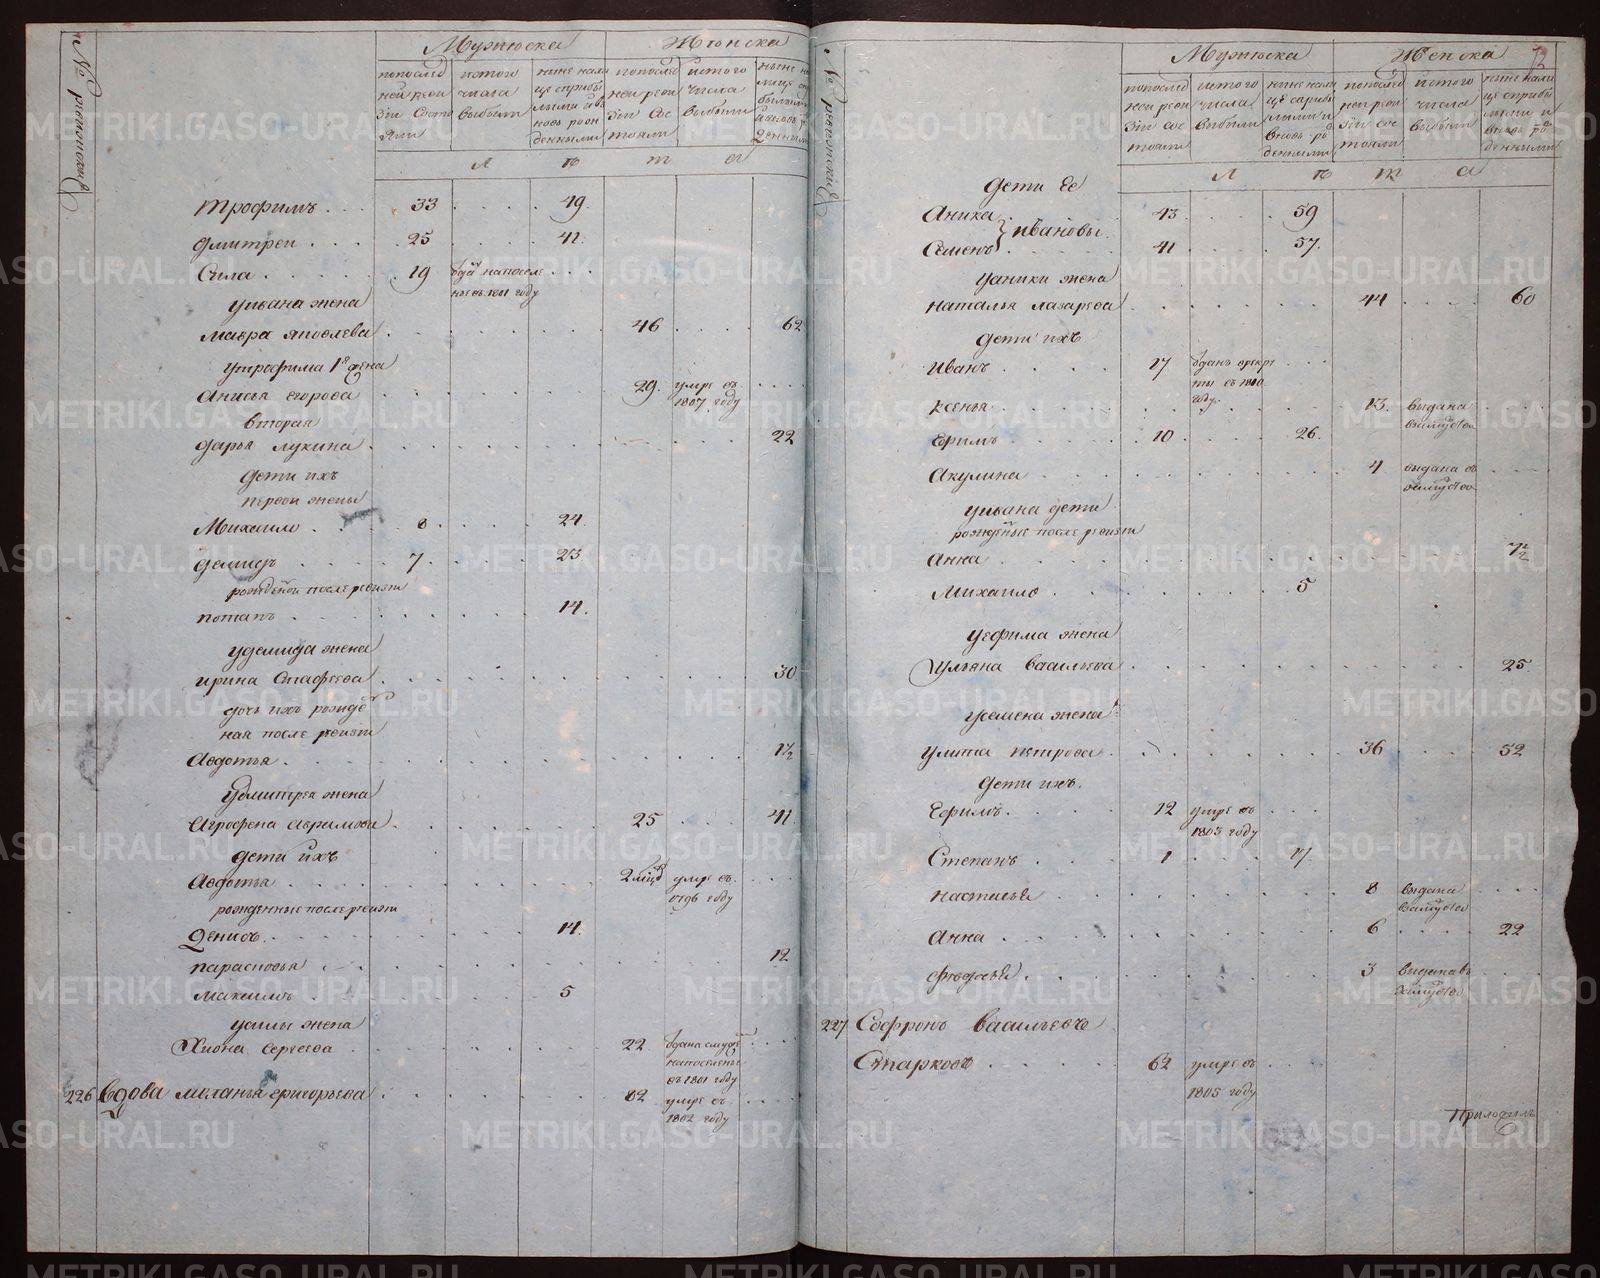 № ревизския
Мужеска
Женска
по послед
ней реви
зіи Состо
яли
из того
числа
выбыли
ныне нали
це с прибы
лыми и в
новь рож
денными
по послед
ней реви
зіи Сос
тояли
из того
числа
выбыли
л е т а
Трофимъ . . . 33 . . . . 49.
Дмитреи . . . . 25 . . . . 41.
Сила . . . . . . 19 отдан на поселе
ние въ 1801 году
у Ивана жена
Мавра Яковлева . 46 . . . . 62
у Трофима 1я жена
Анисья Егорова 29. умре въ
1807 году
вторая
Дарья Лукина . 22
Дети ихъ
первои жены
Михаило . . . 8 . . . . 24.
Демидъ . . . . 7 . . . . 23
рожденои после ревизіи
Потапъ . . . . 14.
у Демида жена
Ирина Стафеева 30
дочь ихъ рожде
ная после ревизіи
Авдотья . 1½
у Дмитрея жена
Агрофена Аврамова 25 . . . 41.
Дети ихъ
Авдотья . . . 2 умре въ
1796 году
рожденные после ревизіи
Денисъ . . . 14.
Парасковья . 12
Максимъ . . 5
у Силы жена
Хиона Сергеева 22 отдана с мужемъ
на поселенье
въ 1801 году
226 Вдова Меланья Григорьева . 82 умре въ
1802 году
№ ревизския
Мужеска
Женска
73
по послед
ней реви
зіи сос
тояли
из того
числа
выбыли
ныне нали
це с прибы
лыми и
вновь ро
денными
по послед
ней реви
зіи сос
тояли
из того
числа
выбыли
ныне нали
це с прибы
лыми и
вновь ро
денными
л е т а
Дети Ее
Аника 43 . . . . 59
Ивановы
Семенъ . . . . 41 . . . . 57.
у Аники жена
Наталья Лазарева 44 . . . . 60
Дети ихъ
Иванъ . . . . 17 отданъ в рекру
ты въ 18
году
Ксенья . . . 13. выдана
взамужство
Ефимъ . . . . 10 . . . . 26.
Акулина . . . 4 выдана въ
замужство
у Ивана дети
рожденые после ревизіи
Анна . . . 7½
Михаило . . . 5
у Ефима жена
Ульяна Васильева . 25
у Семена жена
Улита Петрова . 36 . . . . 52
Дети ихъ.
Ефимъ. . . . 12 умре въ
1803 году
Степанъ . . . . 1 . . . . 17.
Настасья . . . 8 выдана
взамужство
Анна . . . 6 . . . . 22
Федосья . . . 3 выдана въ
замужство
227 Софронъ Васильевъ
Старковъ . . . . . 62 умре въ
1805 году